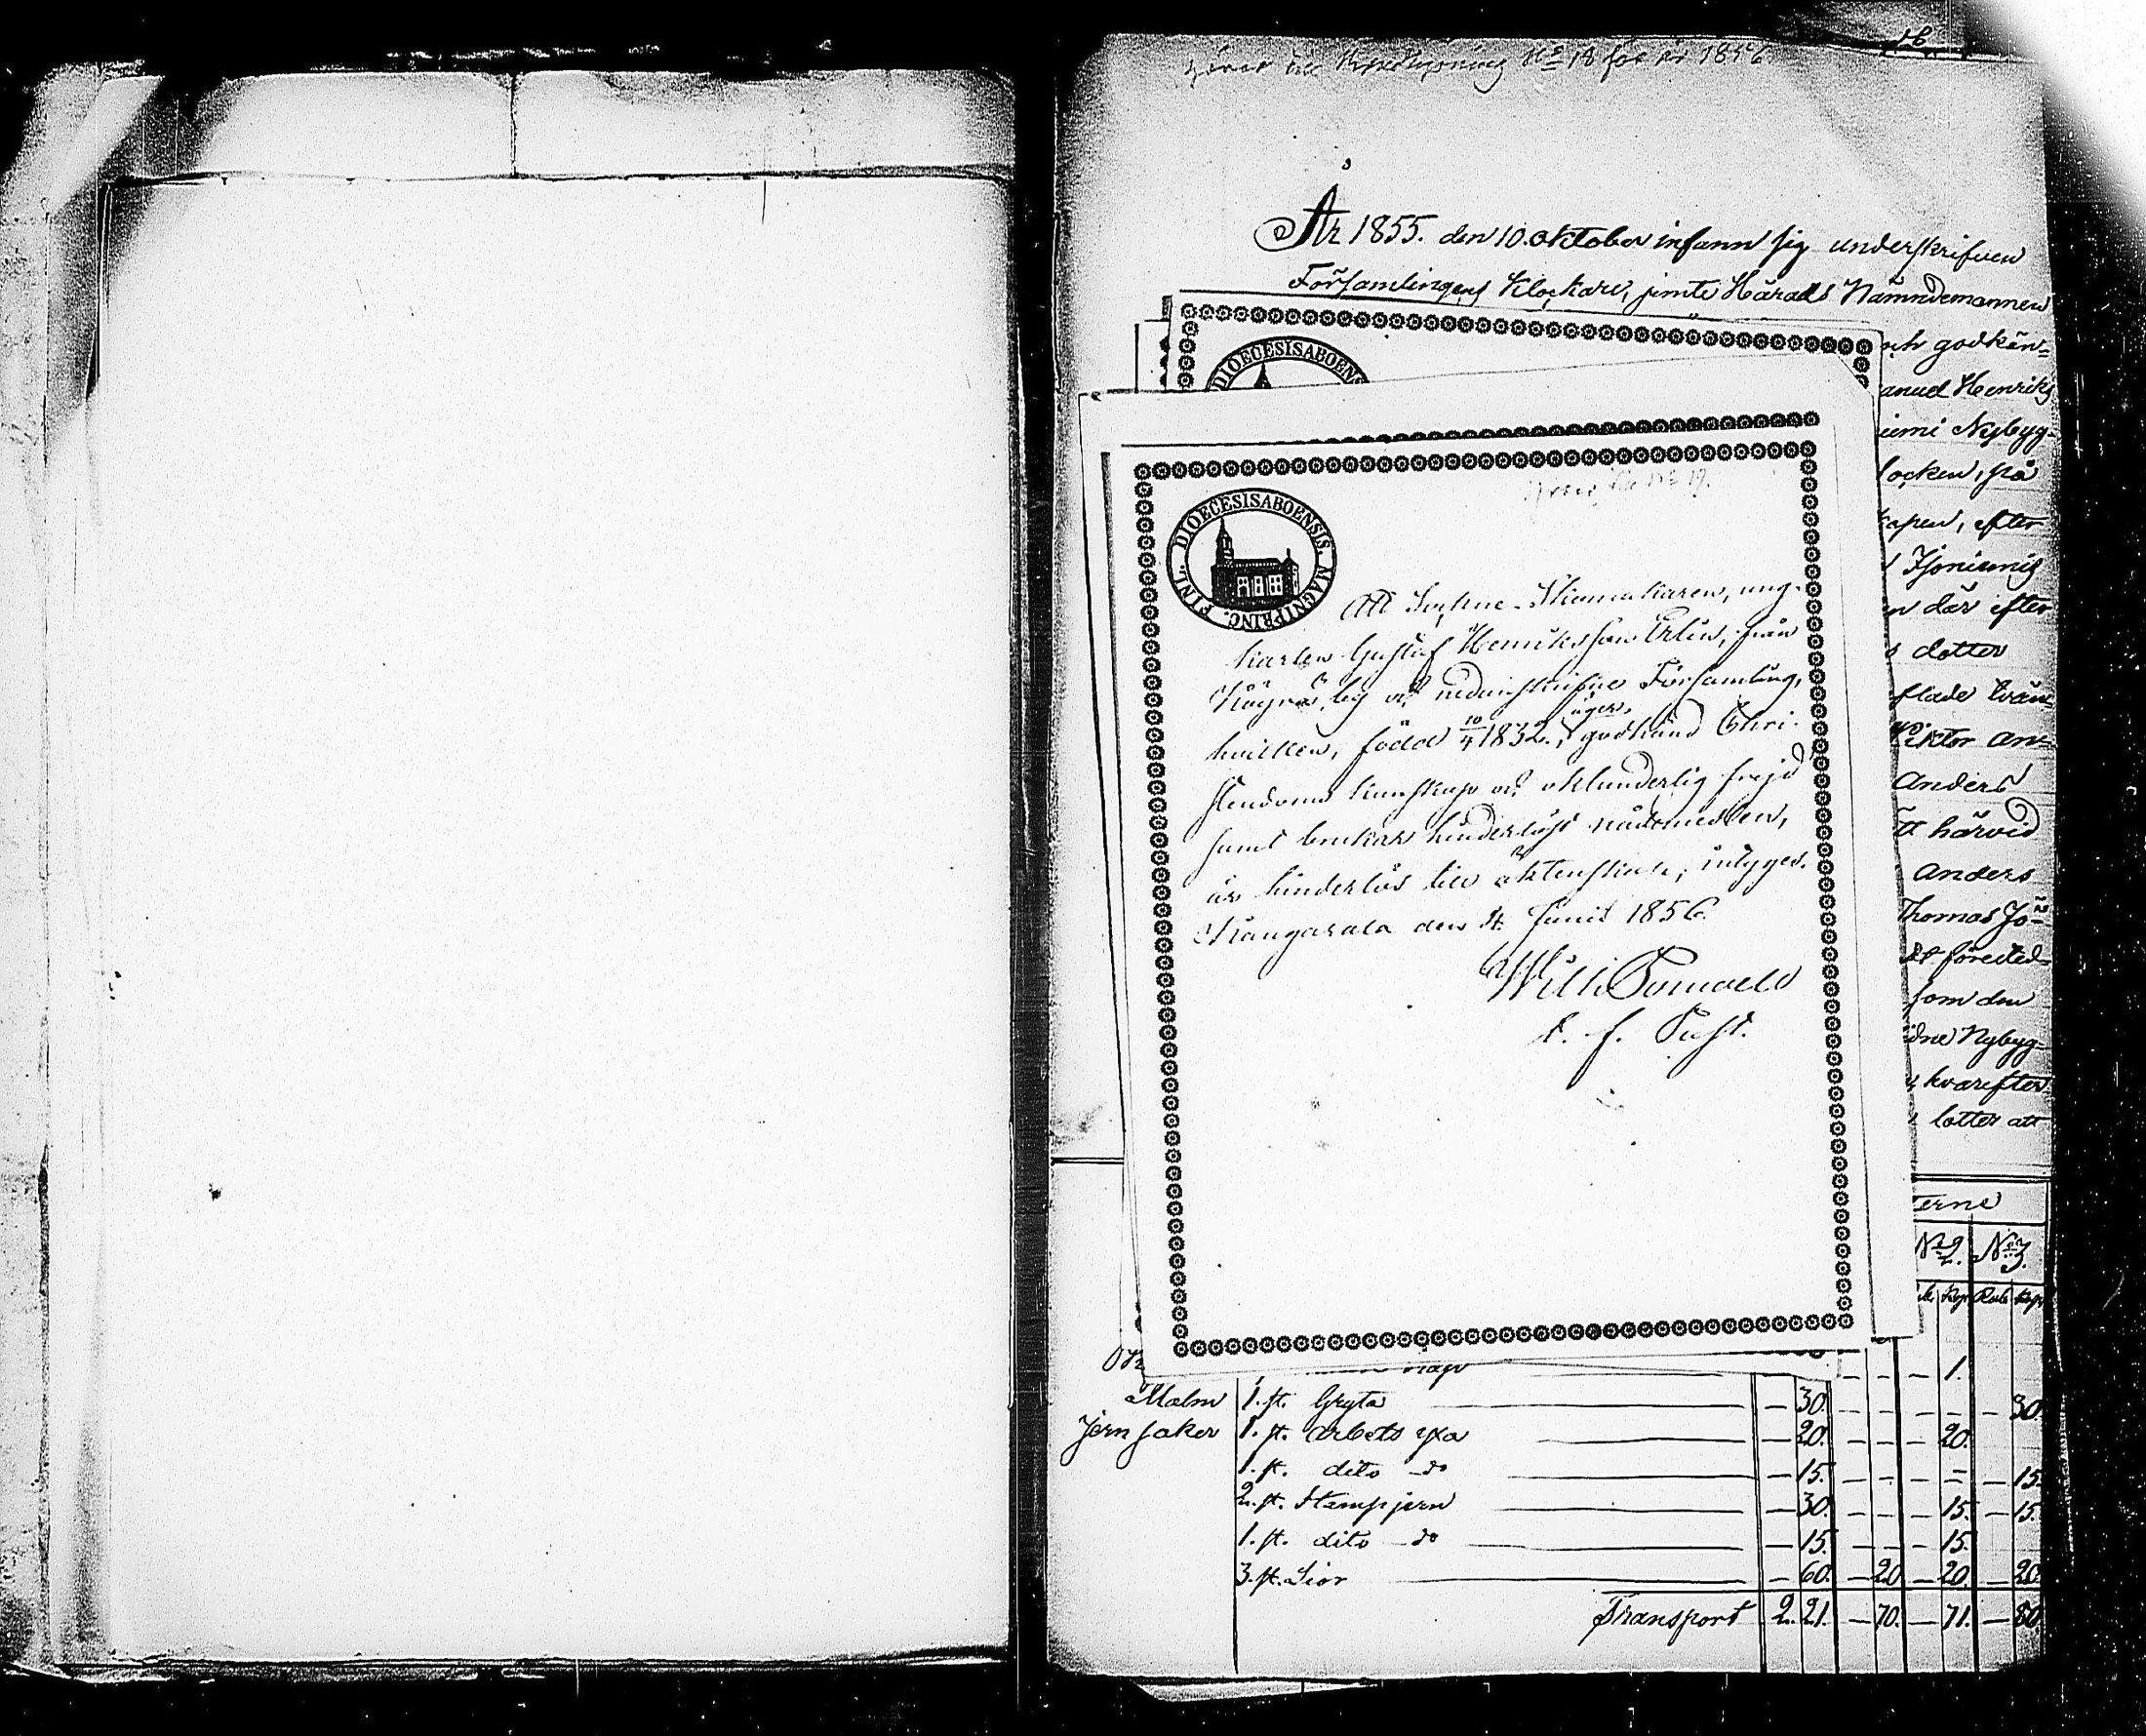 16
hörer till Kundlysning No 18 för år 1856.
År 1855. den 10. oktober infann sig underskrifven
Församlingens Klockare, jemte Härads Nämndemannen
och godkän=
anuel Henriks
iemi Nybyg=
locken, på
kapen, efter
Isoniemis
n där efter
s dotter
flade tvän=
Viktor an=
Anders
tt härvid
Anders
Thomas Jo=
förested=
som den
Nybyg=
kvarefter
lotter att
DIOECESISABOENS
DIOECESISABOENSIS. MAGNIPRINC. FINL.
hörer till No 19.
Att Sockne-Skomakaren, ung-
karlen Gustaf Henriksson Erlin, från
by och nedanskrifne Församling,
hvilken, född 10/4 1832, äger godkänd Chri-
stendoms kunskap och oklanderlig frejd
samt brukar hinderlöst nådemedlen,
är hinderlös till äktenskap; intygas.
Kangasala den 4. Junii 1856.
Wilh
v. f. Past.
terne
No 2. No 3.
Rub Kop Rub Kop
1.
Malm 1. st. Gryta — 30. — 30.
Jern saker 1. st. arbets yxa — 20. — 20.
1. st. dito do — 15. — 15.
2. st. Stampjern — 30. — 15. — 15.
1. st. dito do — 15. — 15.
3. st. Lior — 60. — 20 — 20. — 20.
Transport 2. 21. — 70. — 71. — 80.